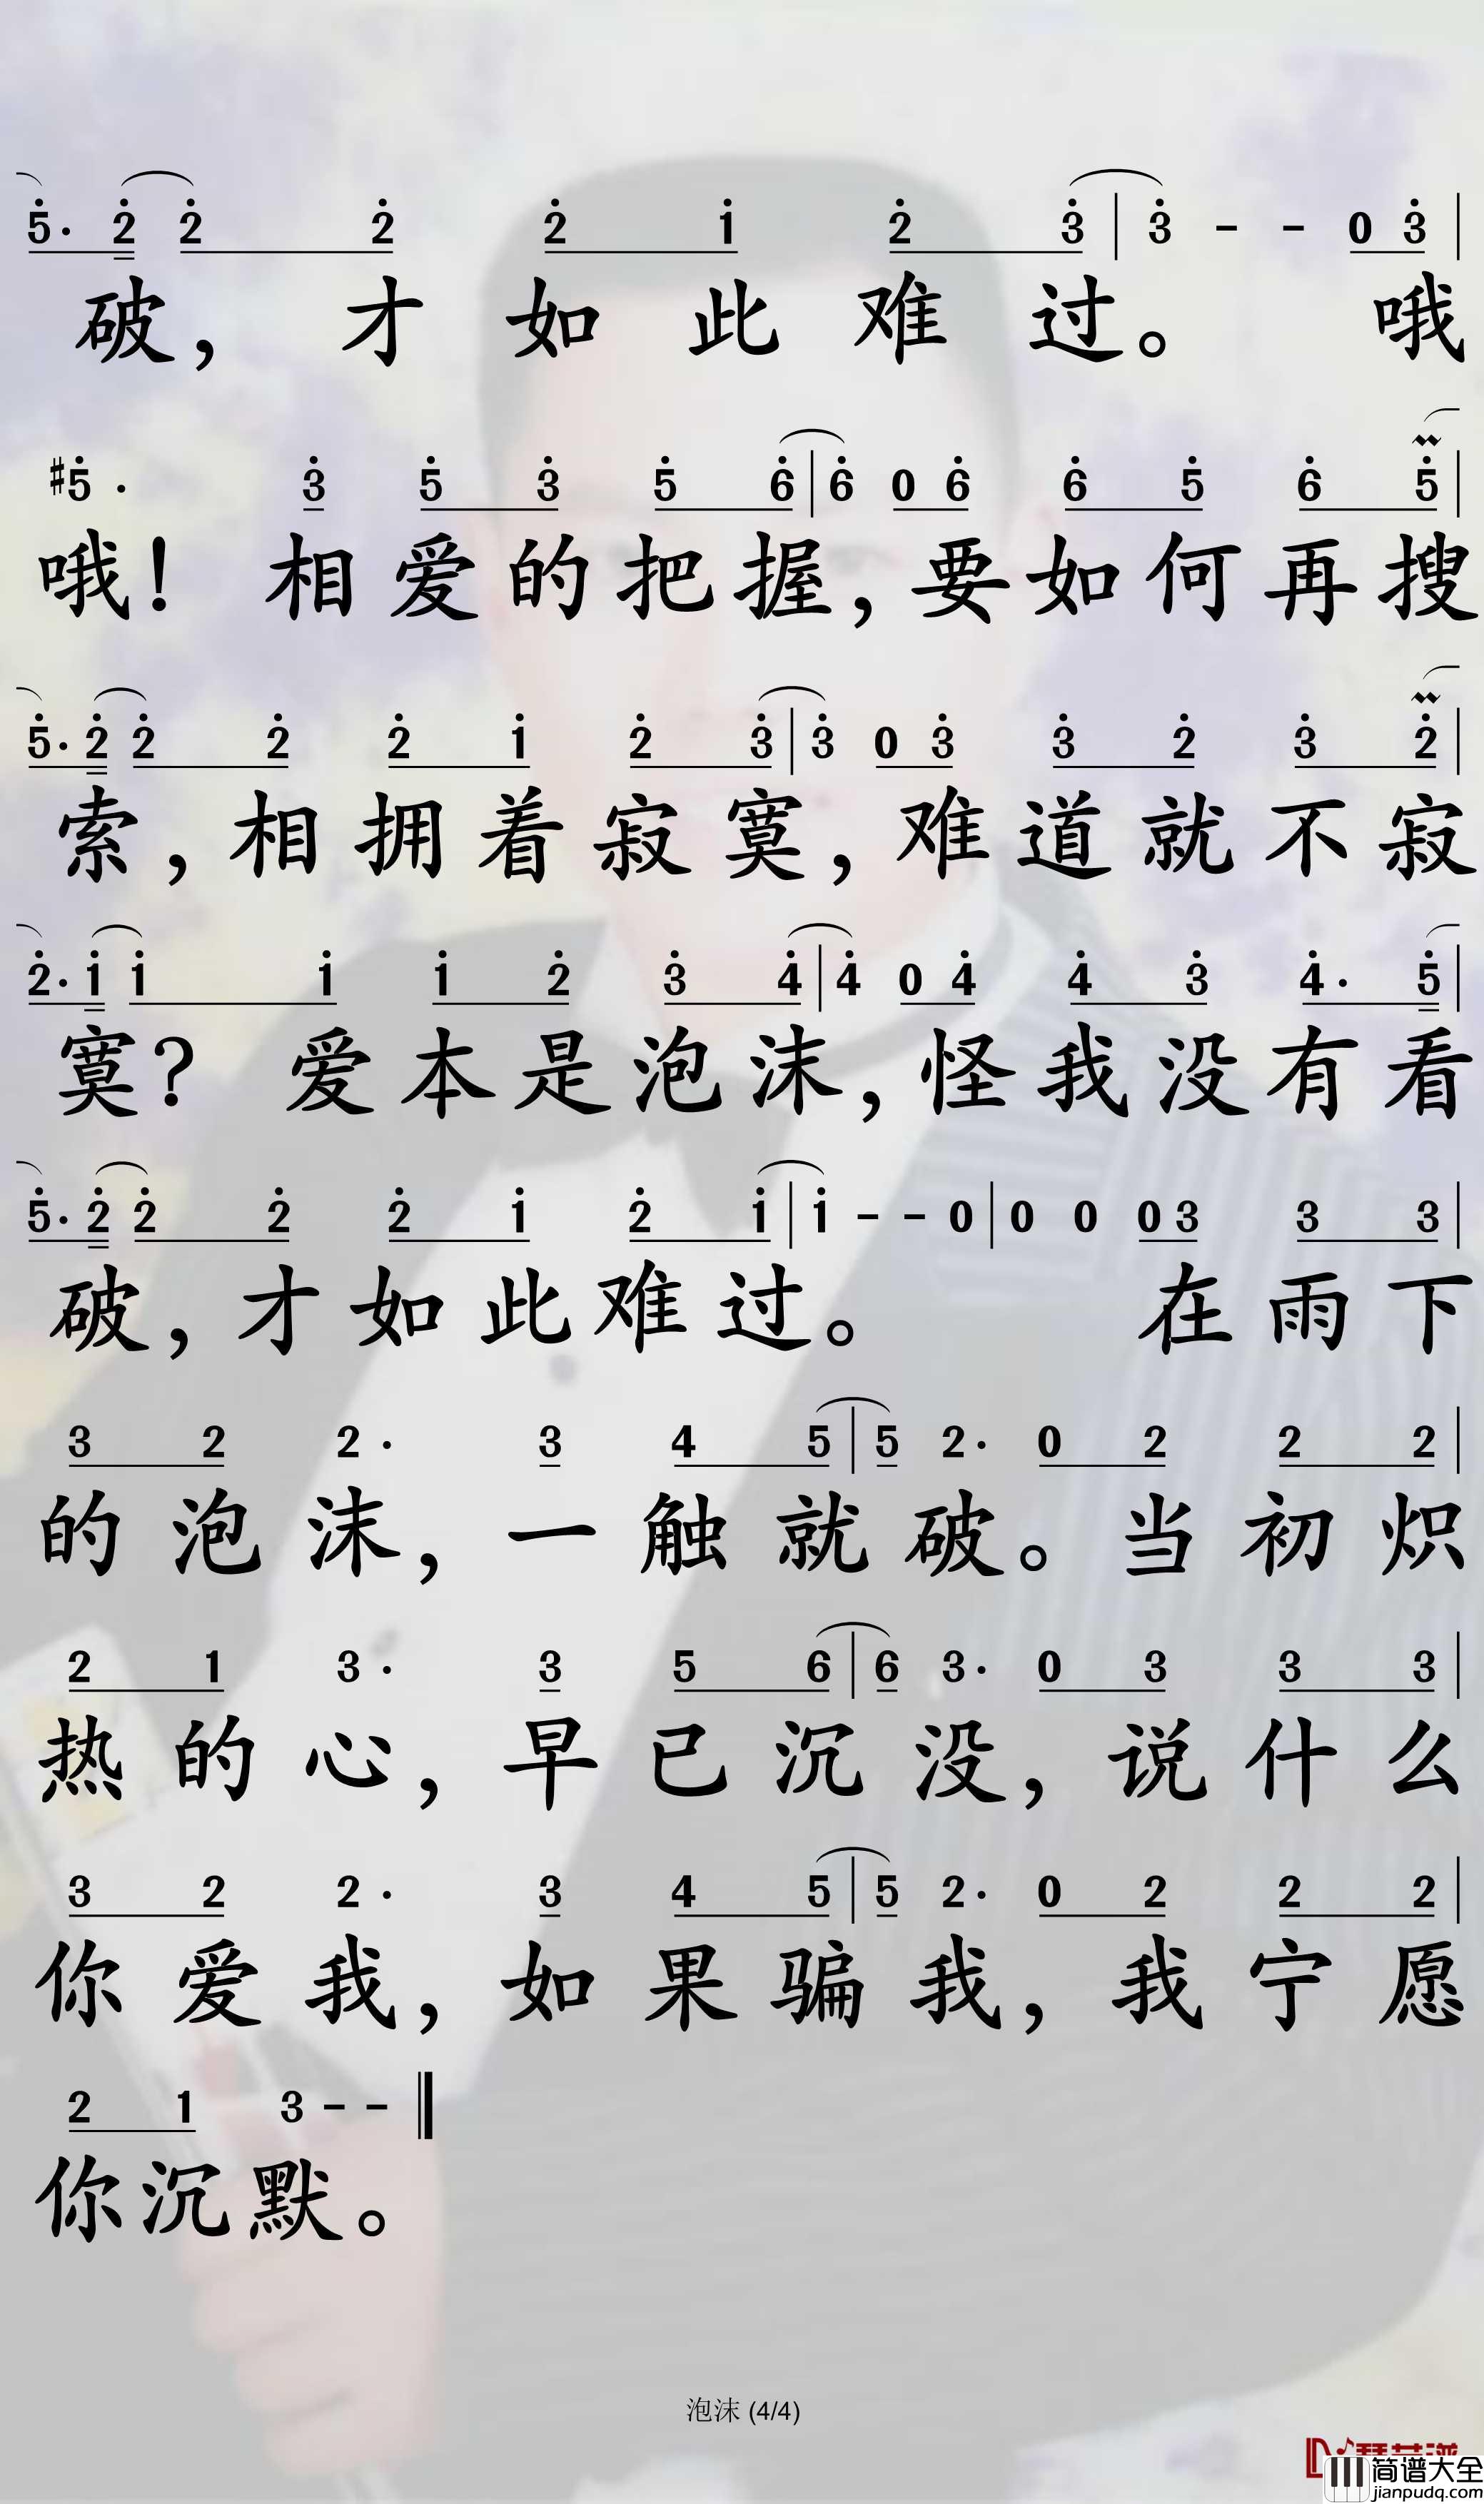 5· 2 2 2 2 1 2 3 | 3 - - 0 3 |
破，才如此难过。 哦
#5· 3 5 3 5 6 | 6 0 6 6 5 6 5 |
哦！相爱的把握，要如何再搜
5· 2 2 2 2 1 2 3 | 3 0 3 3 2 3 2 |
索，相拥着寂寞，难道就不寂
2· 1 1 1 1 2 3 4 | 4 0 4 4 3 4· 5 |
寞？ 爱本是泡沫，怪我没有看
5· 2 2 2 2 1 2 1 | 1 - - 0 | 0 0 0 3 3 3 |
破，才如此难过。 在雨下
3 2 2· 3 4 5 | 5 2· 0 2 2 2 |
的泡沫，一触就破。当初炽
2 1 3· 3 5 6 | 6 3· 0 3 3 3 |
热的心，早已沉没，说什么
3 2 2· 3 4 5 | 5 2· 0 2 2 2 |
你爱我，如果骗我，我宁愿
2 1 3 - - ‖
你沉默。
泡沫 (4/4)
简谱大全
jianpudq.com